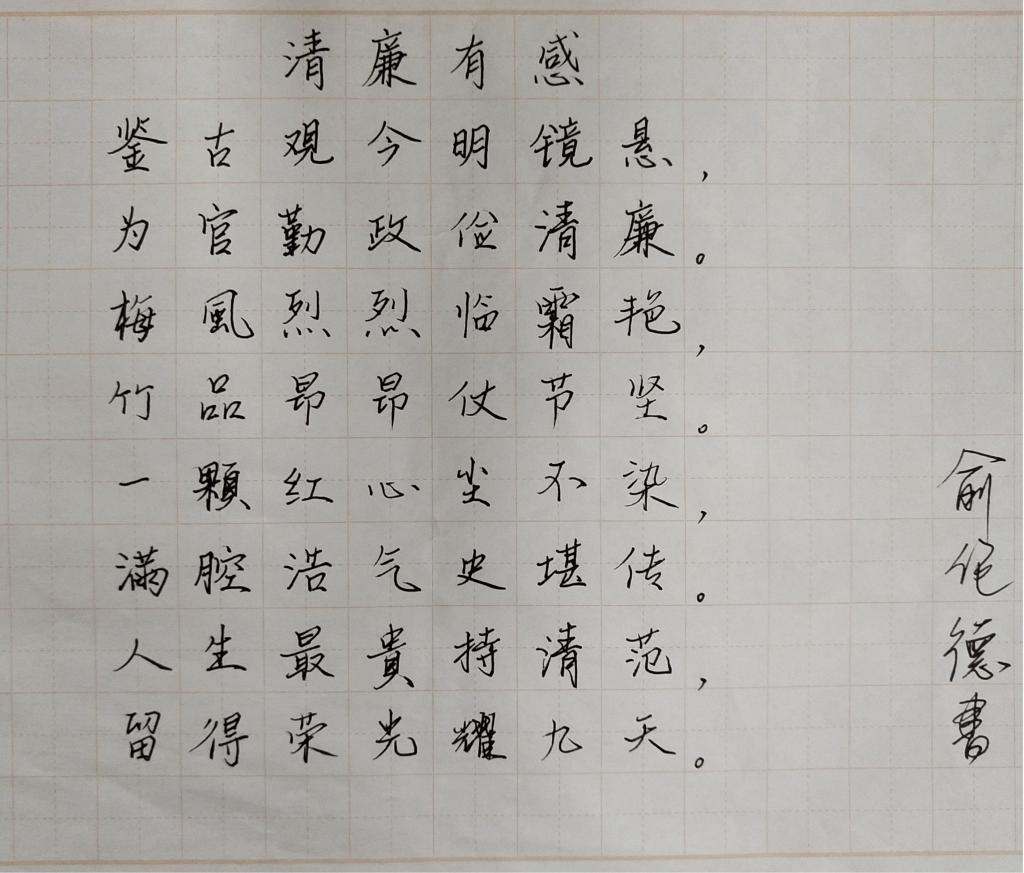 清廉有感
鉴古观今明镜悬，
为官勤政俭清廉。
梅風烈烈临霜艳，
竹品昂昂仗节坚。
一顆红心尘不染，
满腔浩气史堪传。
人生最貴持清范，
留得荣光耀九天。
俞 德書